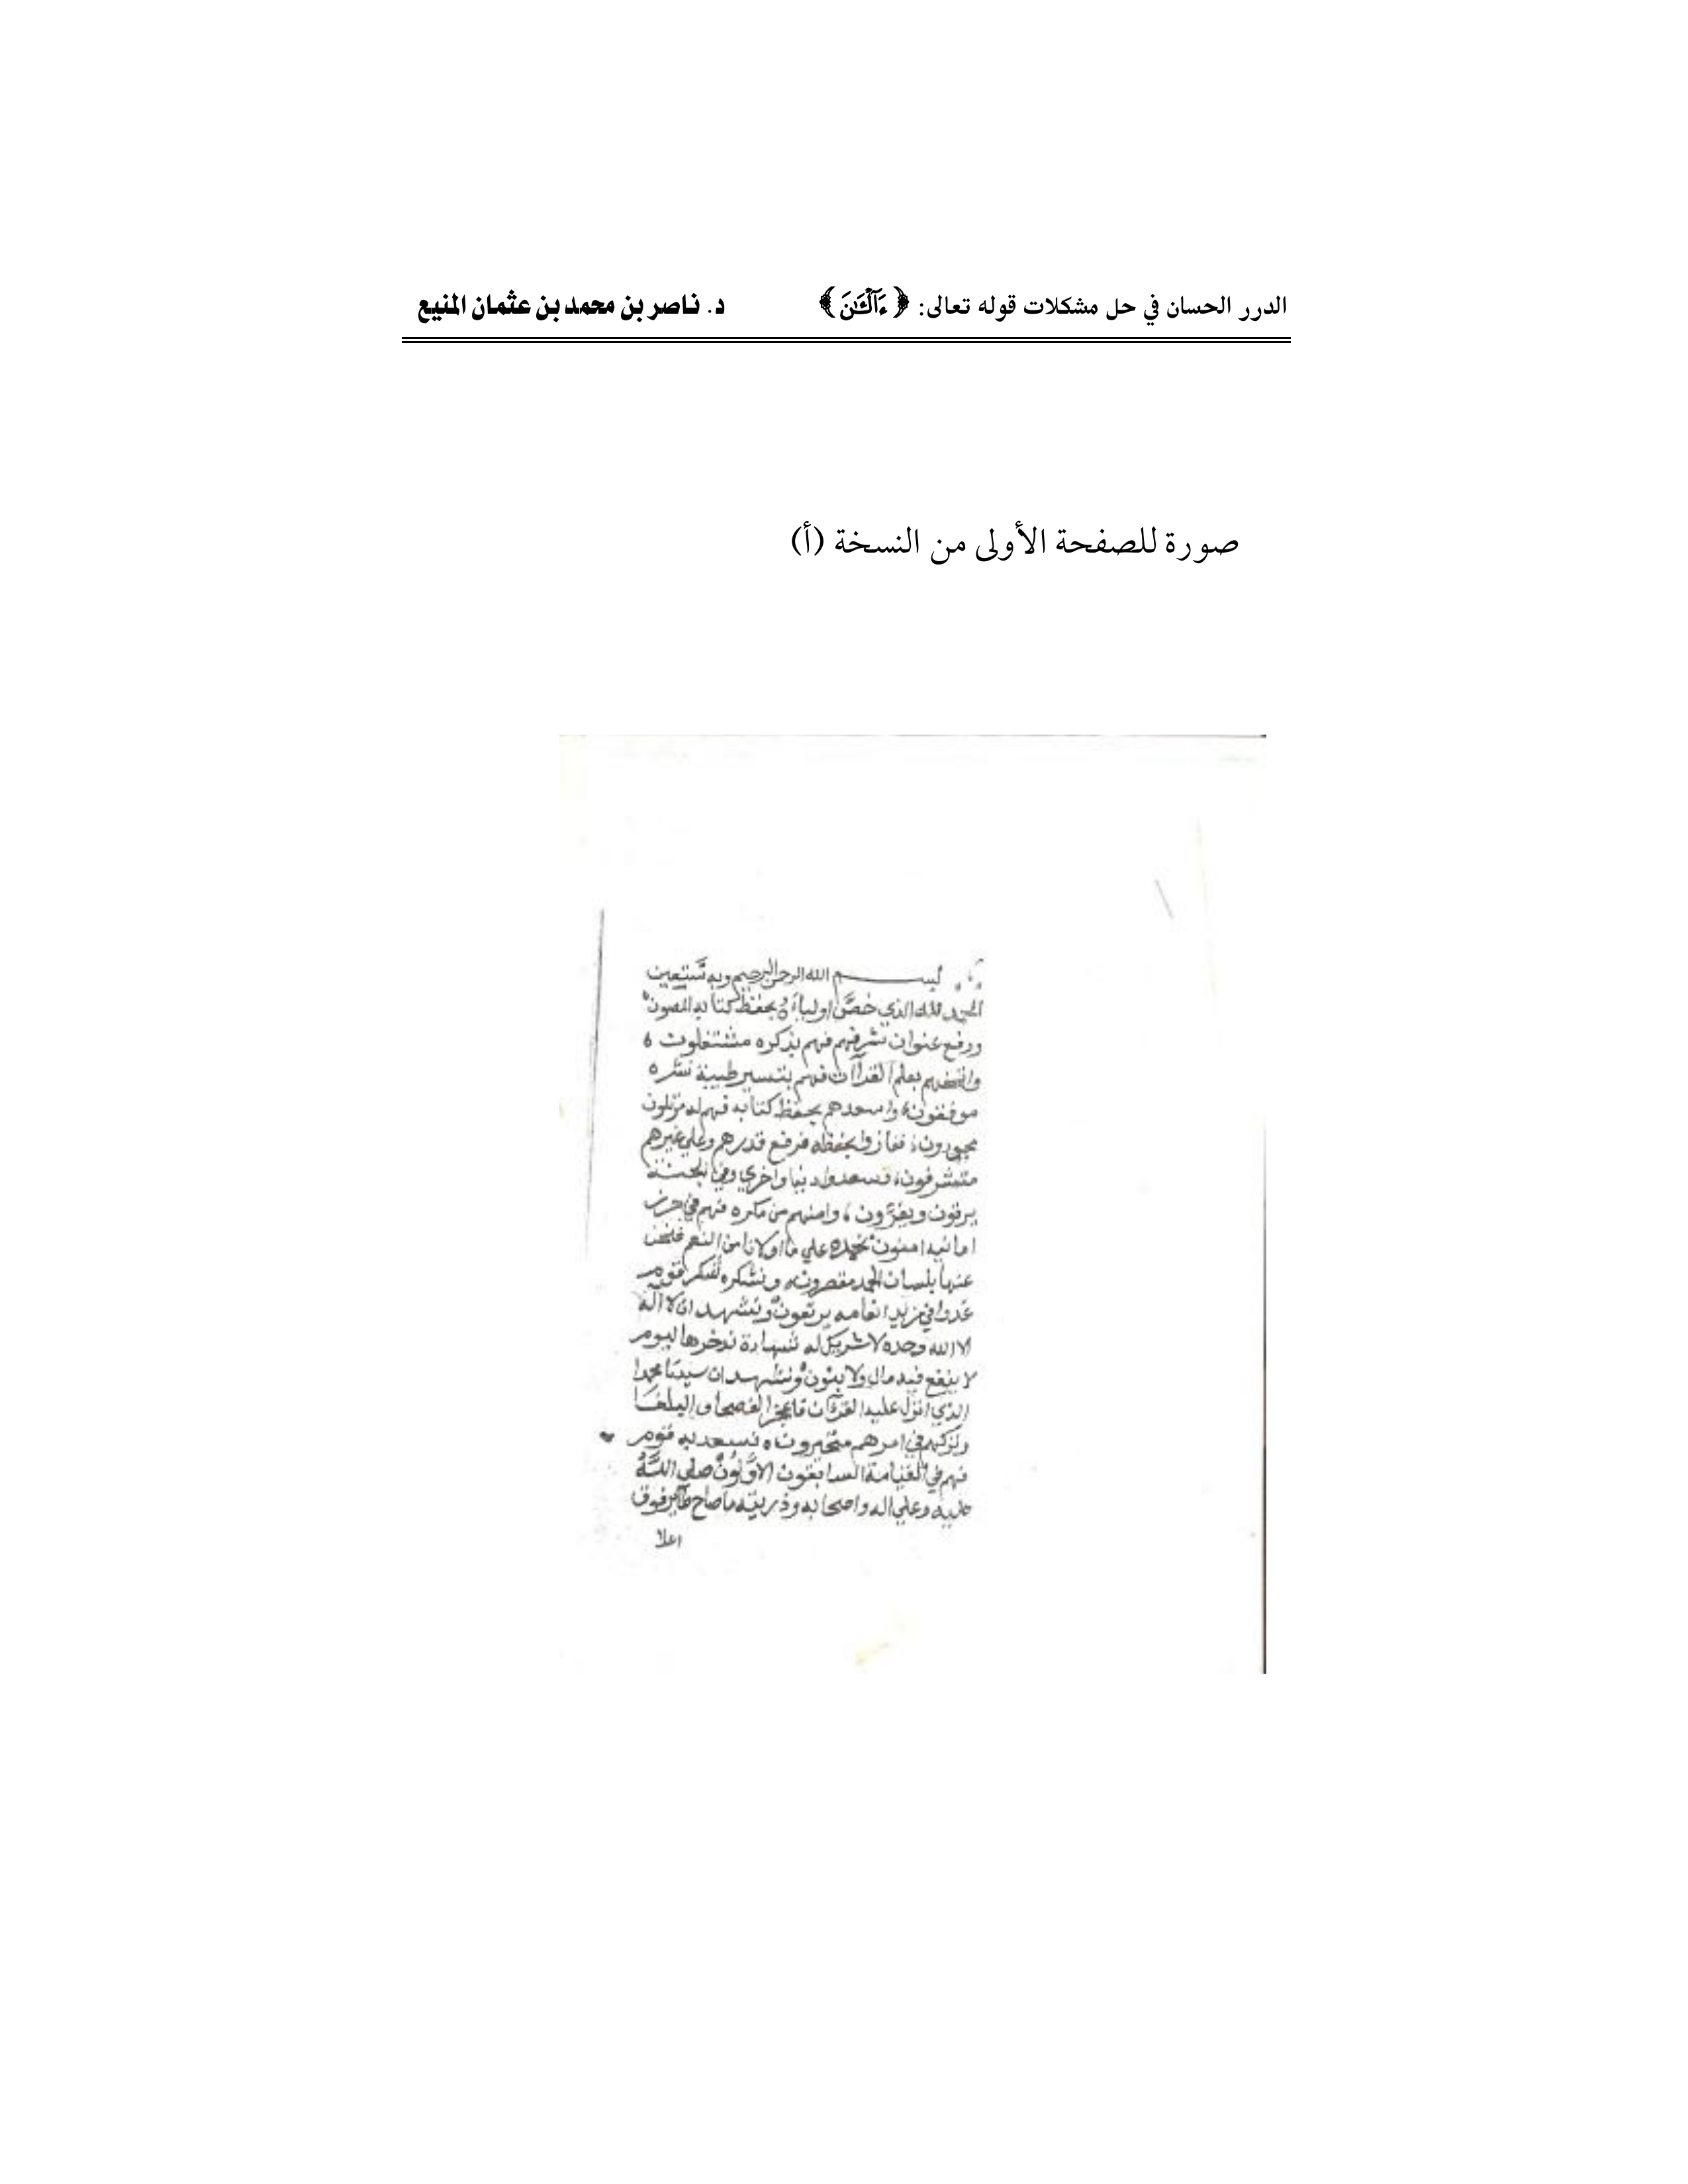 الدرر الحسان في حل مشكلات قوله تعالى: ﴿ءَآلْـَٰٔنَ﴾ د. ناصر بن محمد بن عثمان المنيع
صورة للصفحة الأولى من النسخة (أ)
بسم الله الرحمن الرحيم وبه نستعين
الحمد لله الذي خصَّ اولياءه بحفظ كتابه المصون
ورفع عنوان شرفهم فهم بذكره مشتغلون
بعلم القرآن فهم بتيسير طيبة نشره
موفقون واسعدهم بحفظ كتابه فهم له مرتلون
مجودون ففازوا بحفظه فرفع قدرهم وعلي غيرهم
متشرفون فسعدوا دنيا واخري وفي الجنة
يرقون ويقرؤن وامنهم من مكره فهم في حرز
امانيه امنون نحمده علي ما اولانا من النعم فنحن
عنها بلسان الحمد مقصرون ونشكره شكر قوم
غدوا في مزيد انعامه يرتعون ونشهد ان لا اله
الا الله وحده لا شريك له شهادة ندخرها ليوم
لا ينفع فيه مال ولا بنون ونشهد ان سيدنا محمدا
الذي انزل عليه القرءان فاعجز الفصحا والبلغا
وتركهم في امرهم متحيرون فسعد به قوم
فهم في القيامة السابقون الاوَّلون صلي الله
عليه وعلي اله واصحابه وذريته ما صاح طاير فوق
اعلا